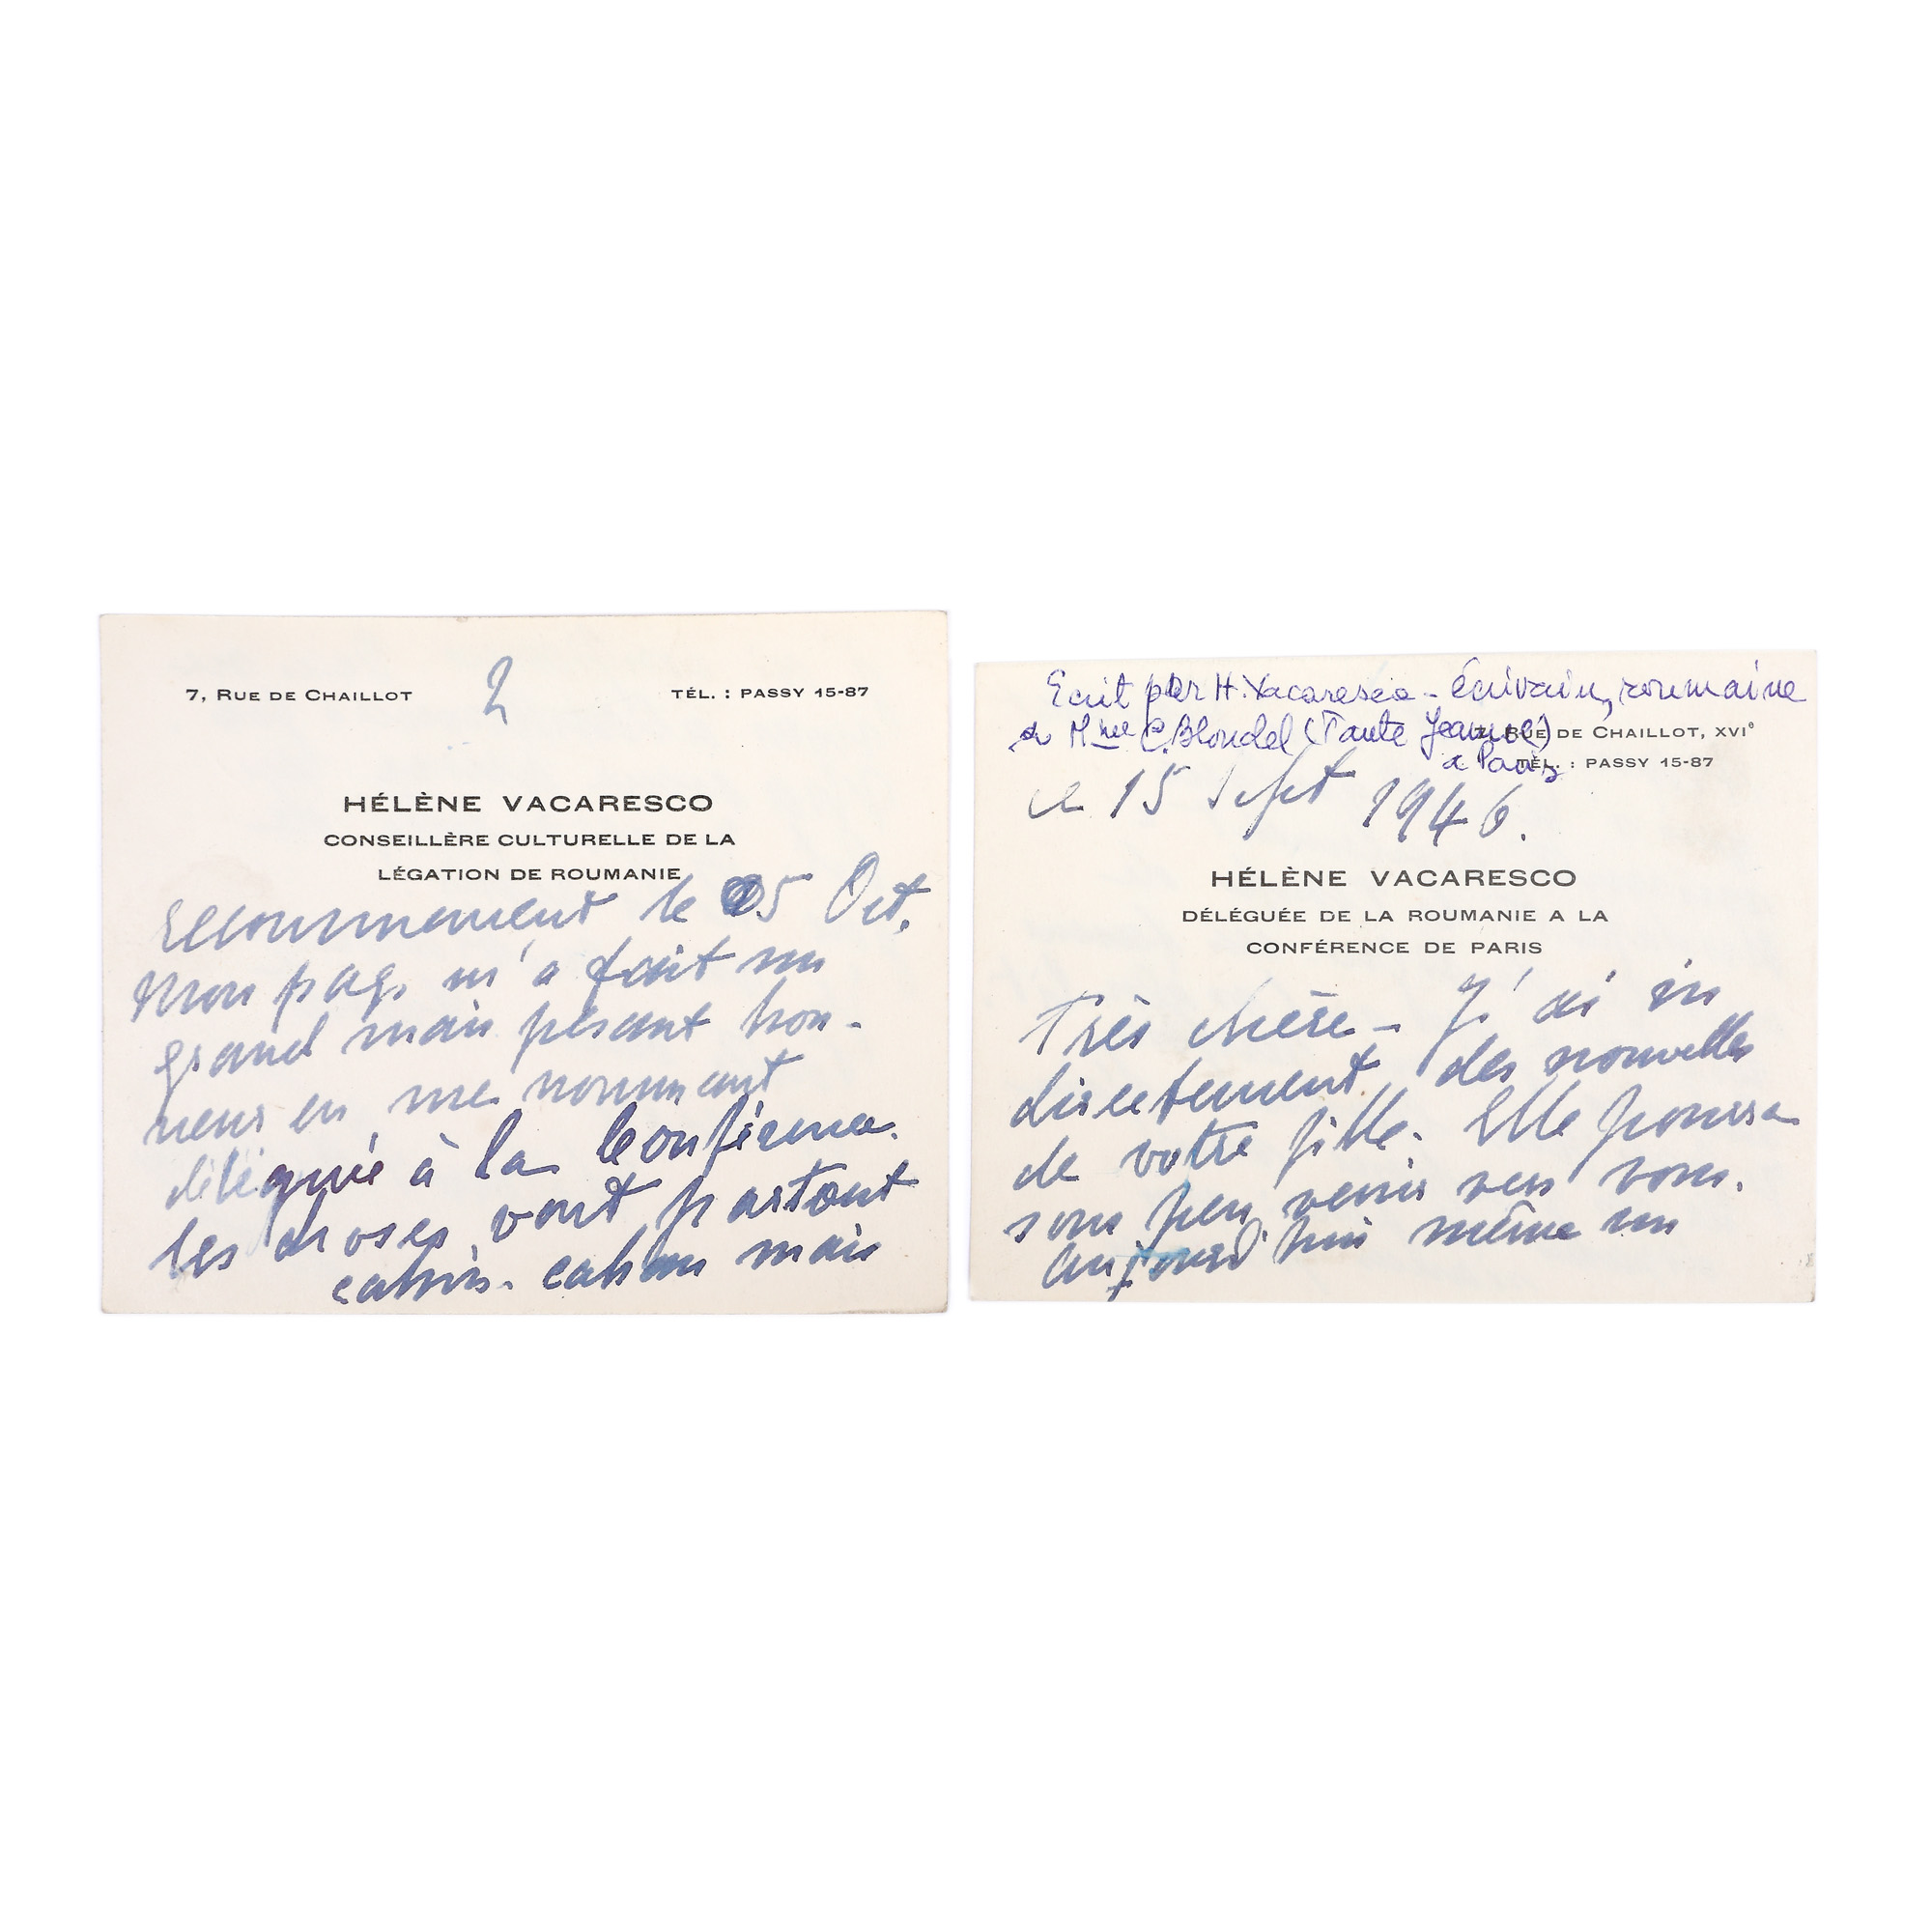 7, RUE DE CHAILLOT
2
TÉL. : PASSY 15-87
HÉLÈNE VACARESCO
CONSEILLÈRE CULTURELLE DE LA
LÉGATION DE ROUMANIE
le 25 Oct.
Mon pays m'a fait un
grand mais pesant hon-
neur en me nommant
déléguée à la Conférence.
les choses vont partout
cahin-cahan mais
Ecrit par H. Vacaresco - Écrivain, roumaine
à Mme C. Blondel (Tante Jeanne)
à Paris
7, RUE DE CHAILLOT, XVIe
TÉL. : PASSY 15-87
le 15 Sept 1946.
HÉLÈNE VACARESCO
DÉLÉGUÉE DE LA ROUMANIE A LA
CONFÉRENCE DE PARIS
Très chère - J'ai eu
directement des nouvelles
de votre fille. Elle pourra
sous peu venir vers vous.
Aujourd'hui même un